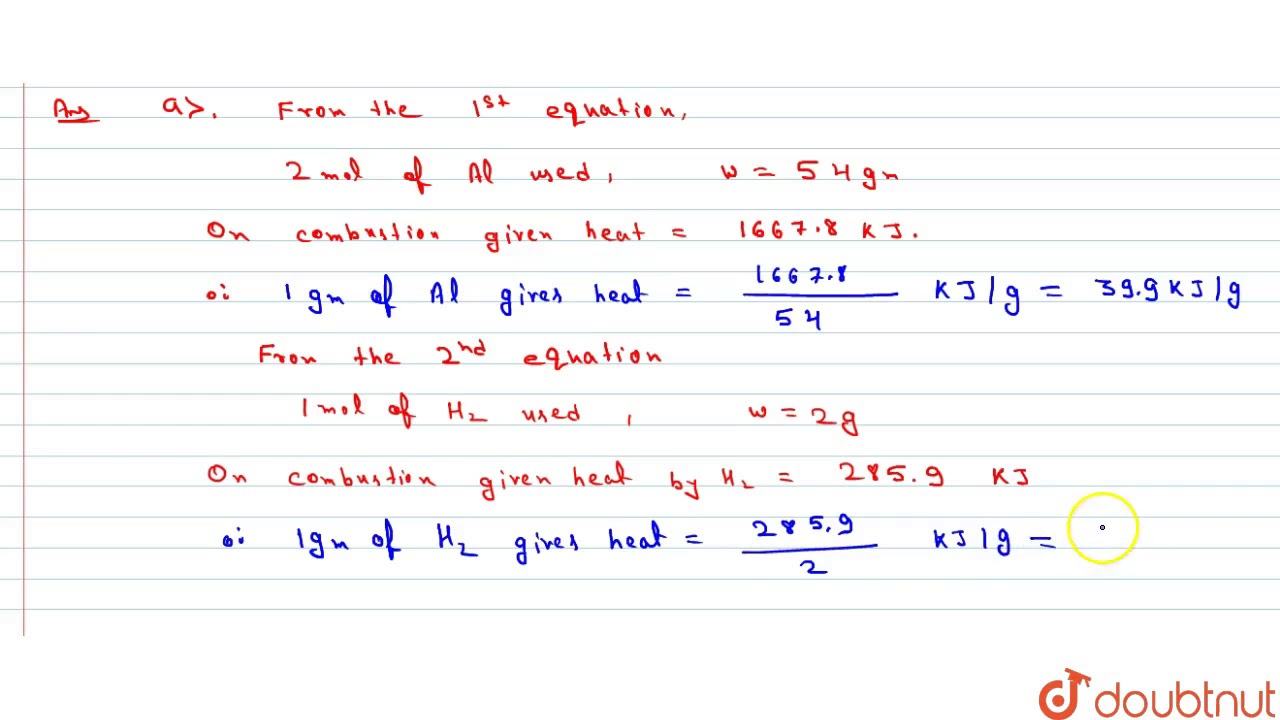 Ans a>. From the 1st equation,
2 mol of Al used, w = 54 gm
On combustion given heat = 1667.8 KJ.
∴ 1 gm of Al gives heat = 1667.8/54 KJ/g = 39.9 KJ/g
From the 2nd equation
1 mol of H2 used, w = 2g
On combustion given heat by H2 = 285.9 KJ
∴ 1gm of H2 gives heat = 285.9/2 KJ/g =
doubtnut